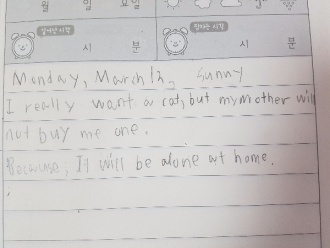 월 일 요일
일어난 시각 시 분
잠자는 시각 시 분
Monday, March 12, Sunny
I really want a cat, but my mother will
not buy me one.
Because, It will be alone at home.